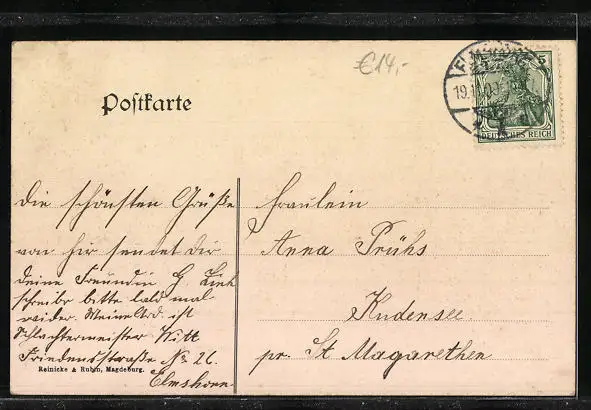 €14,-
5
19.
DEUTSCHES REICH
Postkarte
die schönsten Grüße
von hir sendet dir
deine Freundin G. Link
schreibe bitte bald mal
wieder. Meine Adr. ist
Schlachtermeister Witt
Friedensstraße No 26.
Elmshorn
Reinicke & Rubin, Magdeburg.
Fräulein
Anna Prühs
Kudensee
pr. St Magarethen